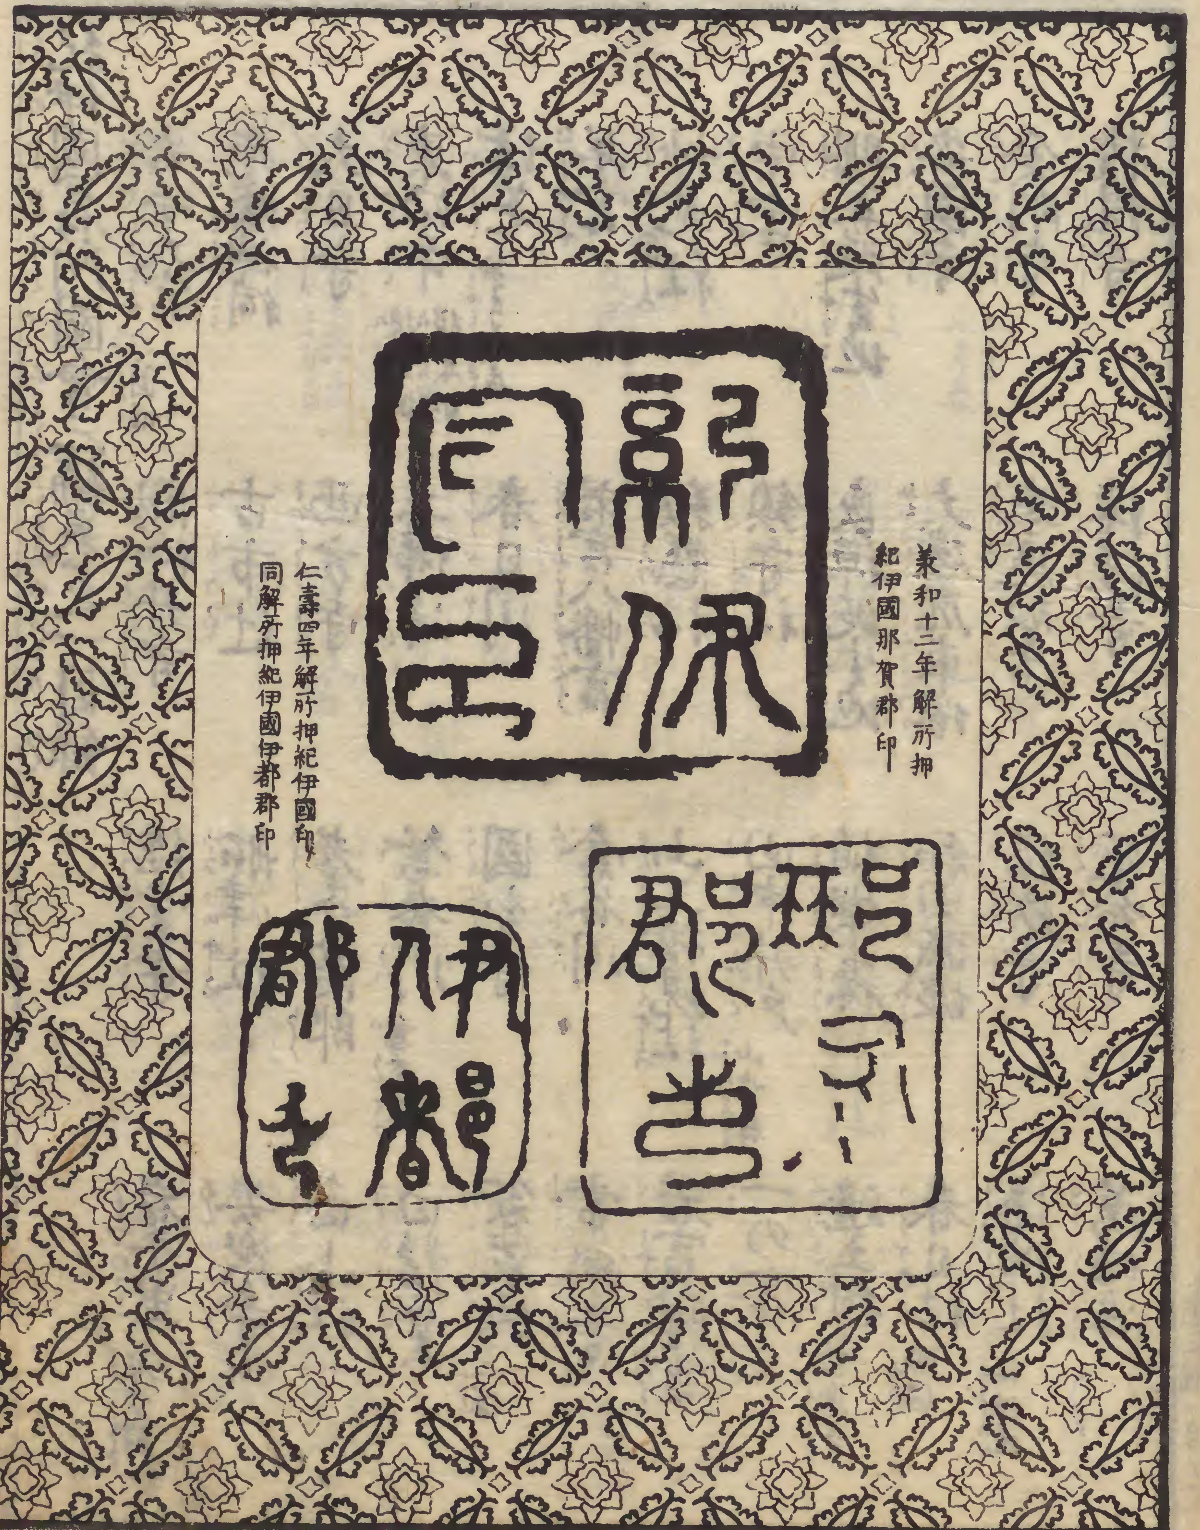 承和十二年解所押
紀伊國那賀郡印
紀伊
國印
仁壽四年解所押紀伊國印
同解所押紀伊國伊都郡印
那賀
郡印
伊都
郡印